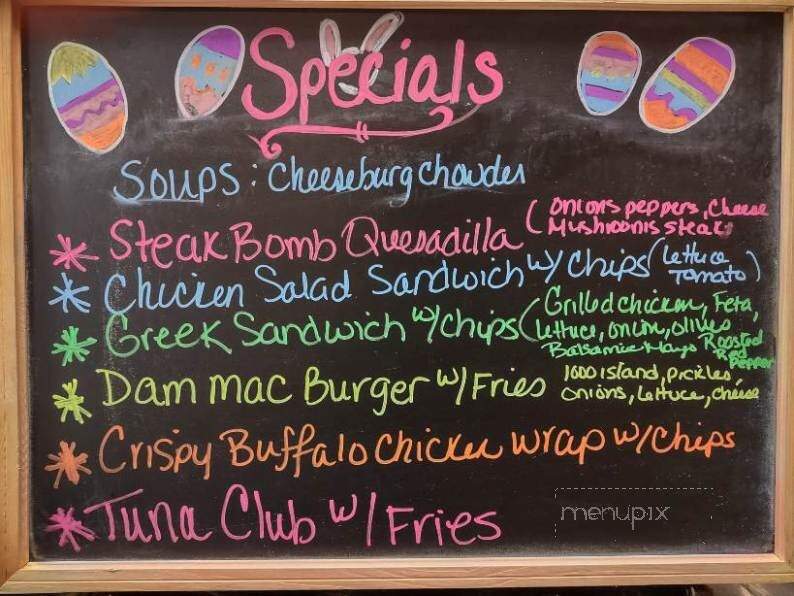 Specials
Soups: Cheeseburg chowder
* Steak Bomb Quesadilla (onions peppers, cheese
Mushrooms steak
* Chicken Salad Sandwich w/ Chips (Lettuce
Tomato)
* Greek Sandwich w/chips (Grilled chicken, Feta,
lettuce, onion, olives
Balsamic Mayo Roasted
Red
Pepper
* Dam mac Burger w/ Fries 1000 island, pickles,
onions, lettuce, cheese
* Crispy Buffalo chicken wrap w/chips
* Tuna Club w/ Fries
menupix